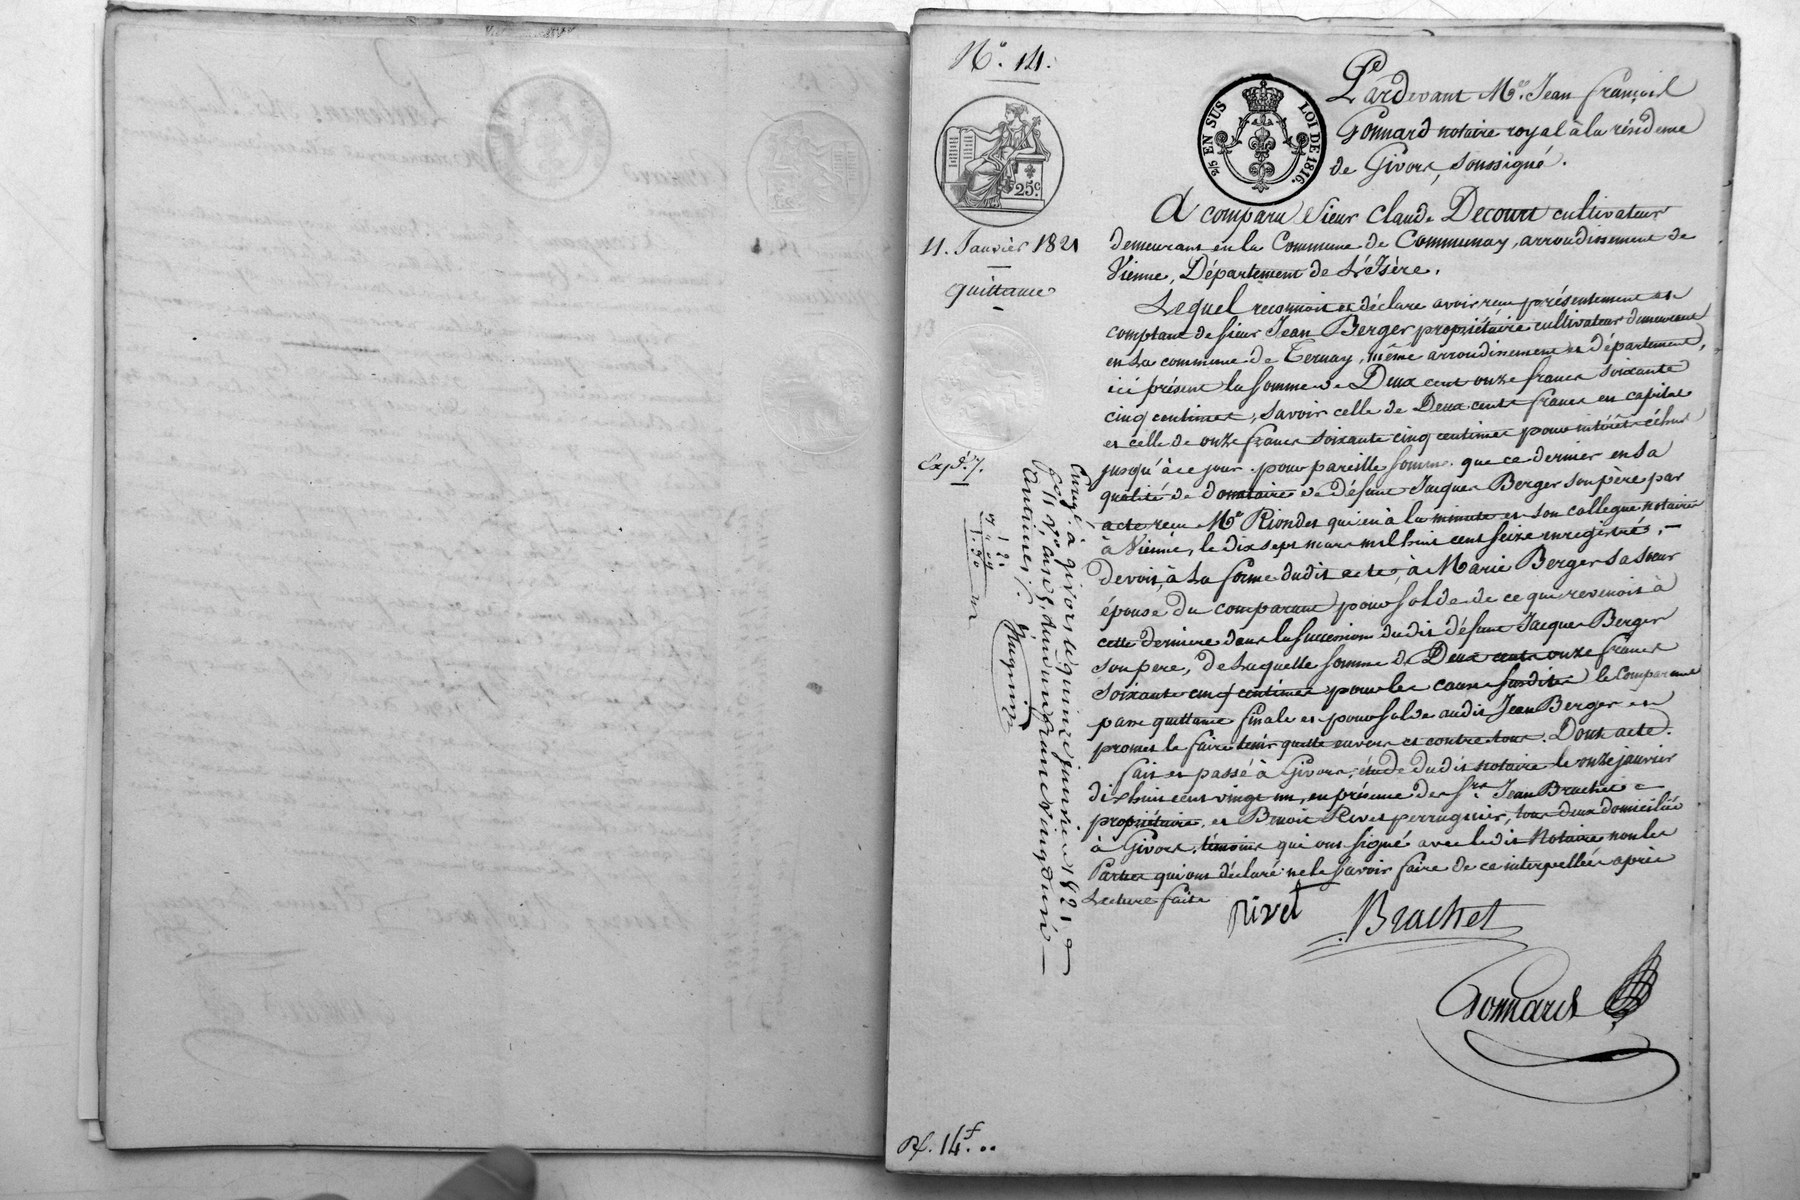 N.° 14.
2/5 EN SUS LOI DE 1816.
25c.
11. Janvier 1821
quittance
Expd. 7.
Pardevant Me. Jean françois
Gonnard notaire royal à la résidence
de Givors, soussigné.
A comparu Sieur Claude Decourt cultivateur
demeurant en la Commune de Communay, arrondissement de
Vienne, Département de L'Isère.
Lequel reconnoit et déclare avoir reçu présentement et
comptant de sieur Jean Berger propriétaire cultivateur demeurant
en la commune de Ternay, même arrondissement et département,
ici présent la somme de Deux cent onze francs soixante
cinq centimes, savoir celle de Deux cents francs en capital
et celle de onze francs soixante cinq centimes pour intérêts échus
jusqu'à ce jour. pour pareille somme que ce dernier en sa
qualité de donataire de défunt Jacques Berger son père par
acte reçu Me. Riondet qui en à la minute et son collègue notaires
à Vienne, le dix sept mars mil huit cent seize enregistré, —
devoit, à la forme dudit acte, à Marie Berger sa sœur
épouse du comparant pour solde de ce qui revenoit à
cette derniere dans la succession dudit défunt Jacques Berger
son pere, de laquelle somme de Deux cents onze francs
soixante cinq centimes pour les causes susdites le comparant
passe quittance finale et pour solde audit Jean Berger et
promet le faire tenir quitte envers et contre tous. Dont acte.
fait et passé à Givors, étude dudit notaire le onze janvier
dix huit cent vingt un, en présence des srs. Jean Brachet
propriétaire, et Benoit Rivet perruquier, tous deux domiciliés
à Givors, témoins qui ont signé avec ledit Notaire non les
Parties qui ont déclaré ne le savoir faire de ce interpellées après
Lecture faite
Rivet Brachet
Gonnard
Enregé. à givors le quinze janvier 1821. fo
11 Vo. case 5. deux francs vingt
centimes
14f...